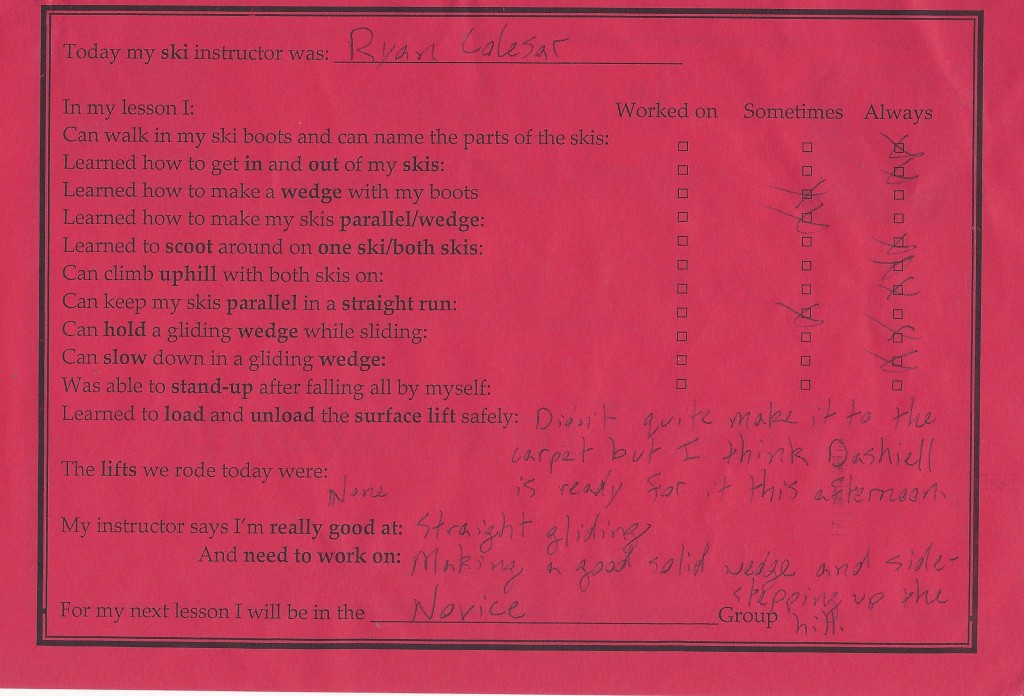 Today my ski instructor was: Ryan Calesar
In my lesson I: Worked on Sometimes Always
Can walk in my ski boots and can name the parts of the skis: □ □ □
Learned how to get in and out of my skis: □ □ □
Learned how to make a wedge with my boots □ □ □
Learned how to make my skis parallel/wedge: □ □ □
Learned to scoot around on one ski/both skis: □ □ □
Can climb uphill with both skis on: □ □ □
Can keep my skis parallel in a straight run: □ □ □
Can hold a gliding wedge while sliding: □ □ □
Can slow down in a gliding wedge: □ □ □
Was able to stand-up after falling all by myself: □ □ □
Learned to load and unload the surface lift safely: Didn't quite make it to the
carpet but I think Dashiell
The lifts we rode today were:
None is ready for it this afternoon.
My instructor says I'm really good at: Straight gliding
And need to work on: Making a good solid wedge and side-
stepping up the
For my next lesson I will be in the Novice Group
hill.